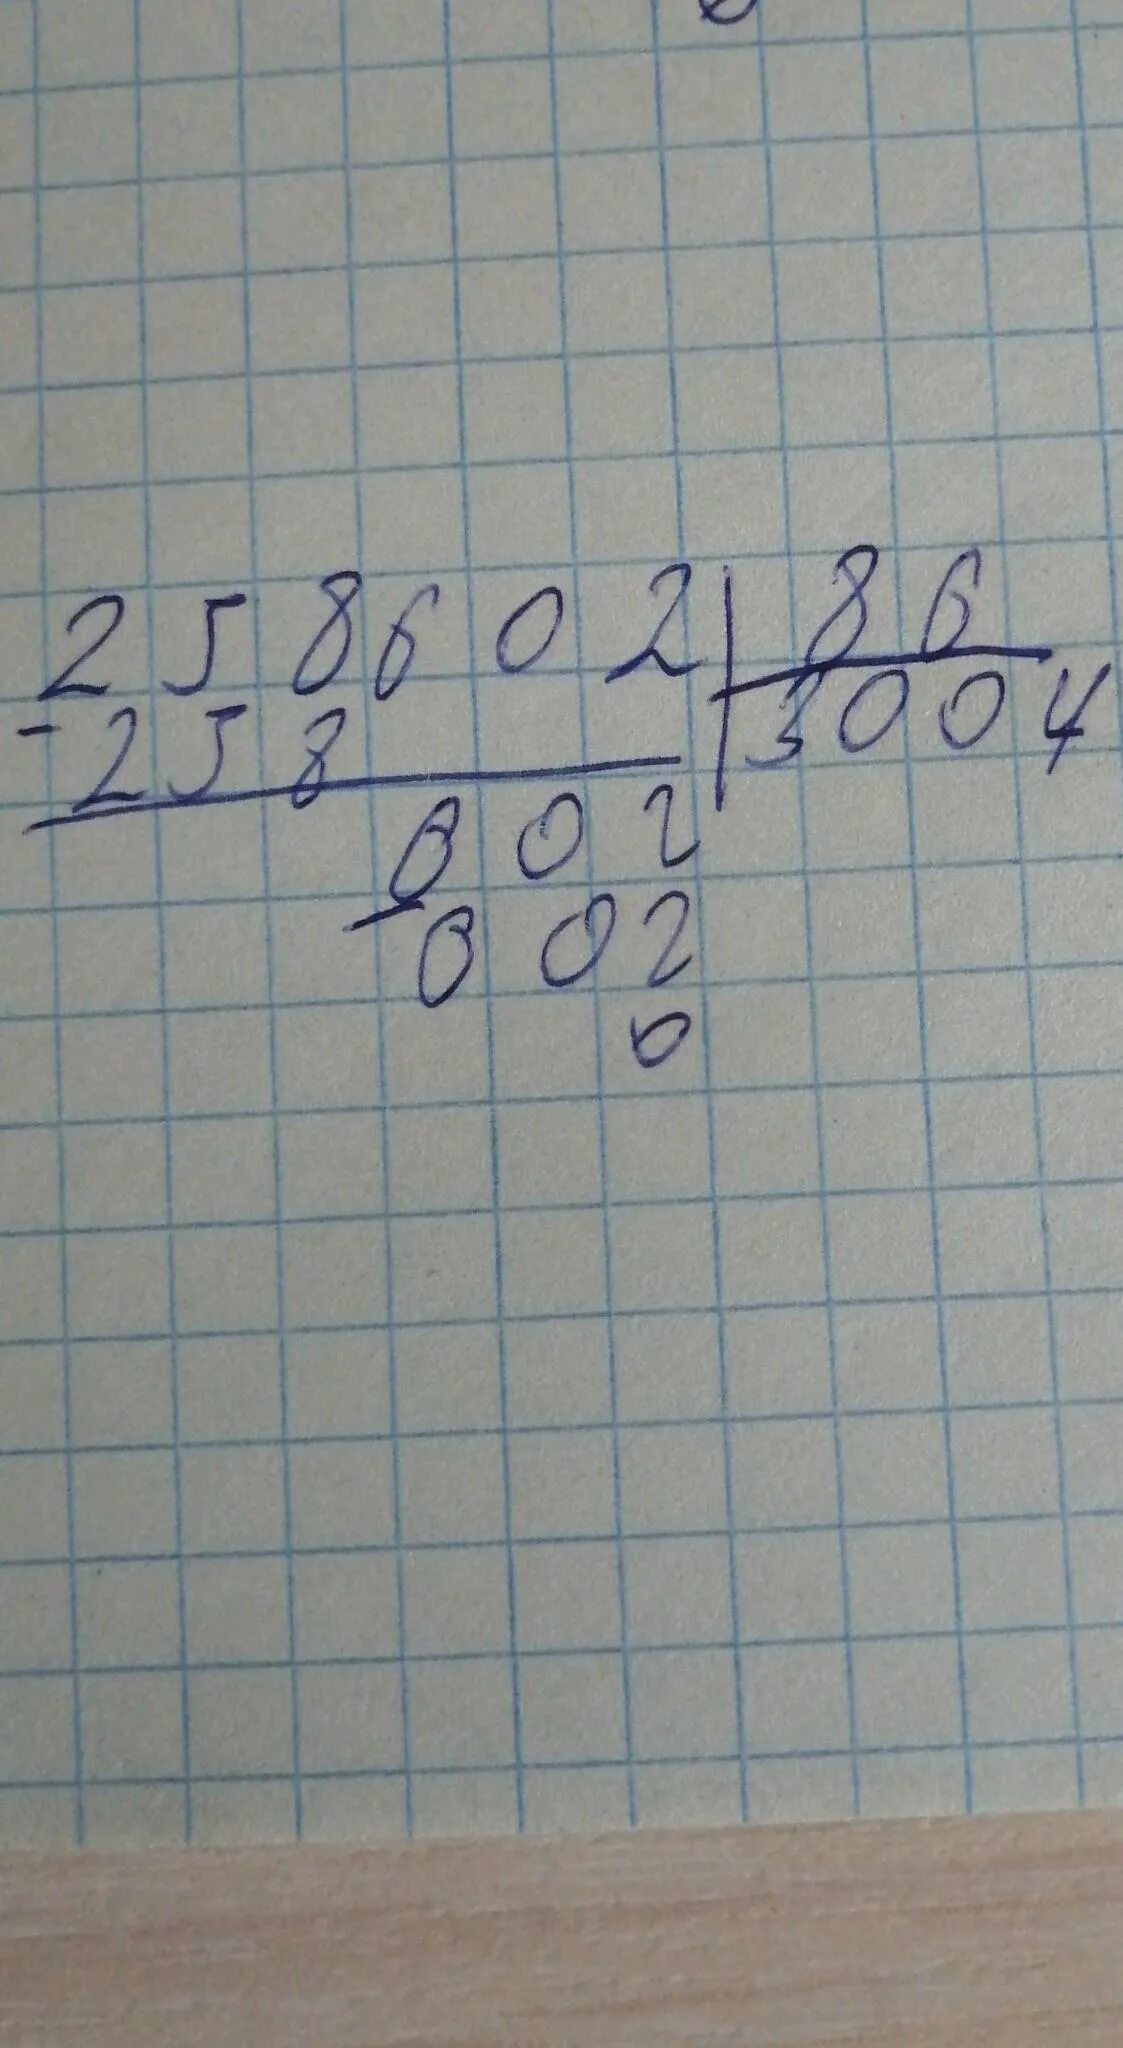 258602 | 86
- 258 | 3004
602
- 602
0